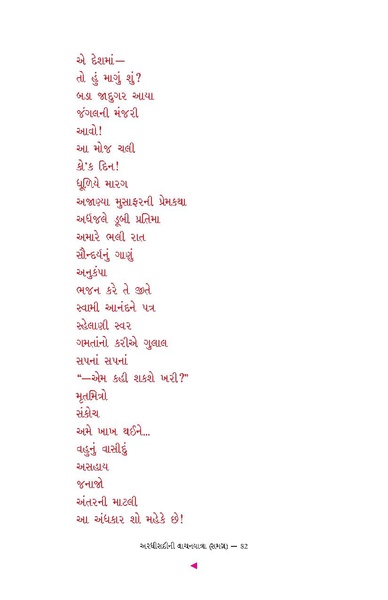 એ દેશમાં—
તો હું માગું શું?
બડા જાદુગર આયા
જંગલની મંજરી
આવો!
આ મોજ ચલી
કો'ક દિન!
ધૂળિયે મારગ
અજાણ્યા મુસાફરની પ્રેમકથા
અર્ધજલે ડૂબી પ્રતિમા
અમારે ભલી રાત
સૌન્દર્યનું ગાણું
અનુકંપા
ભજન કરે તે જીતે
સ્વામી આનંદને પત્ર
સ્હેલાણી સ્વર
ગમતાંનો કરીએ ગુલાલ
સપનાં સપનાં
“—એમ કહી શકશે ખરી?”
મૃતમિત્રો
સંકોચ
અમે ખાખ થઈને...
વહુનું વાસીદું
અસહાય
જનાજો
અંતરની માટલી
આ અંધકાર શો મહેકે છે!
અરધીસદીની વાચનયાત્રા (સમગ્ર) — 82